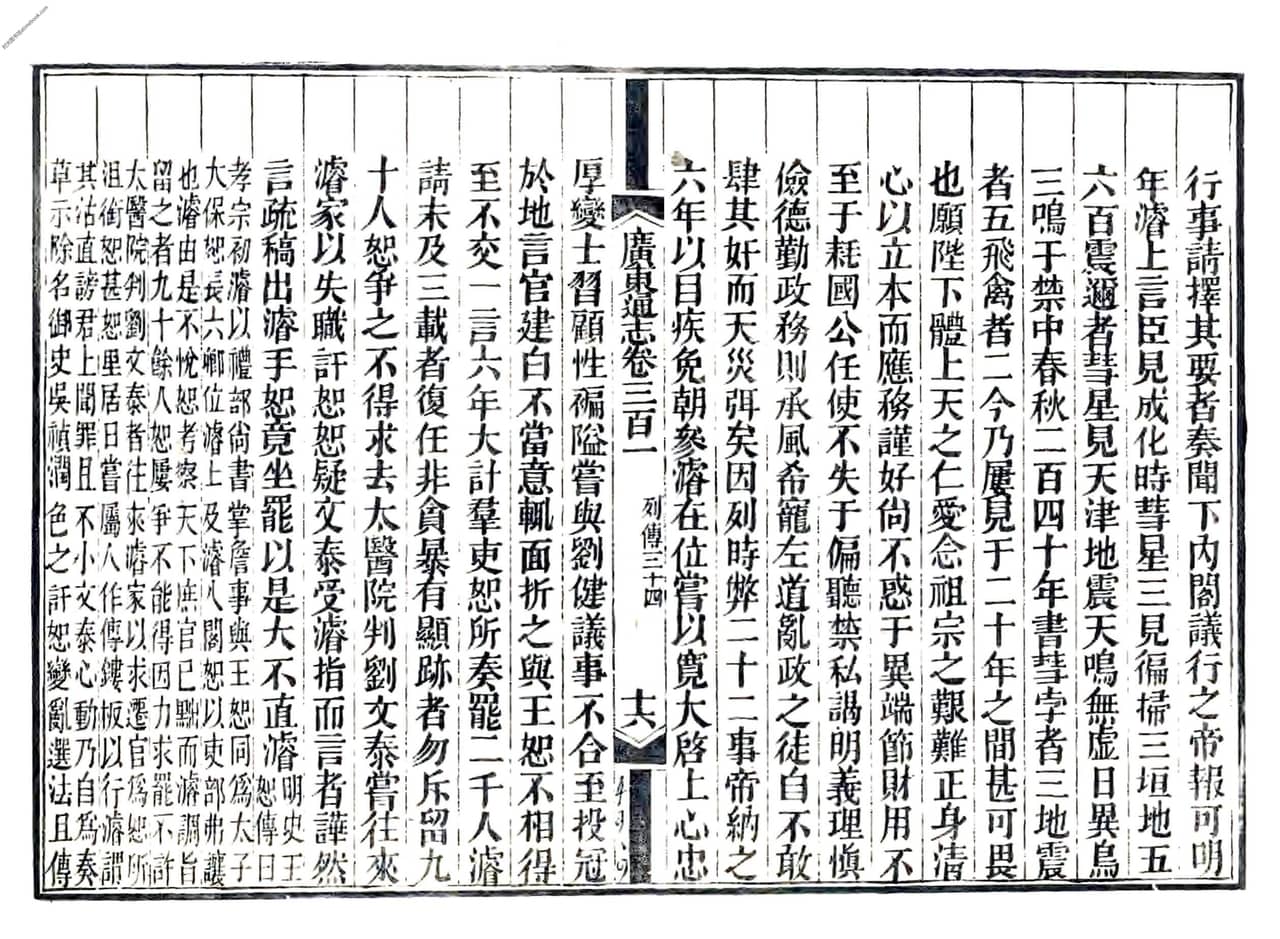 行事請擇其要者奏聞下內閣議行之帝報可明
年濬上言臣見成化時彗星三見徧掃三垣地五
六百震邇者彗星見天津地震天鳴無虛日異鳥
三鳴于禁中春秋二百四十年書彗孛者三地震
者五飛禽者二今乃屢見于二十年之間甚可畏
也願陛下體上天之仁愛念祖宗之艱難正身清
心以立本而應務謹好尙不惑于異端節財用不
至于耗國公任使不失于偏聽禁私謁明義理愼
儉德勤政務則承風希寵左道亂政之徒自不敢
肆其奸而天災弭矣因列時弊二十二事帝納之
六年以目疾免朝參濬在位嘗以寬大啓上心忠
廣東通志卷三百一
列傳三十四
十六
厚變士習顧性褊隘嘗與劉健議事不合至投冠
於地言官建白不當意輒面折之與王恕不相得
至不交一言六年大計羣吏恕所奏罷二千人濬
請未及三載者復任非貪暴有顯跡者勿斥留九
十人恕爭之不得求去太醫院判劉文泰嘗往來
濬家以失職訐恕恕疑文泰受濬指而言者譁然
言疏稿出濬手恕竟坐罷以是大不直濬
明史王
恕傳曰
孝宗初濬以禮部尙書掌詹事與王恕同爲太子
太保恕長六卿位濬上及濬入閣恕以吏部弗讓
也濬由是不悅恕考察天下庶官已黜而濬調旨
留之者九十餘人恕屢爭不能得因力求罷不許
太醫院判劉文泰者往來濬家以求遷官爲恕所
沮銜恕甚恕里居日嘗屬人作傳鏤板以行濬謂
其沽直謗君上聞罪且不小文泰心動乃自爲奏
草示除名御史吳禎潤色之訐恕變亂選法且傳